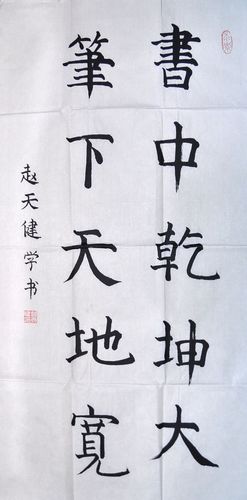 書中乾坤大
筆下天地寬
赵天健学书